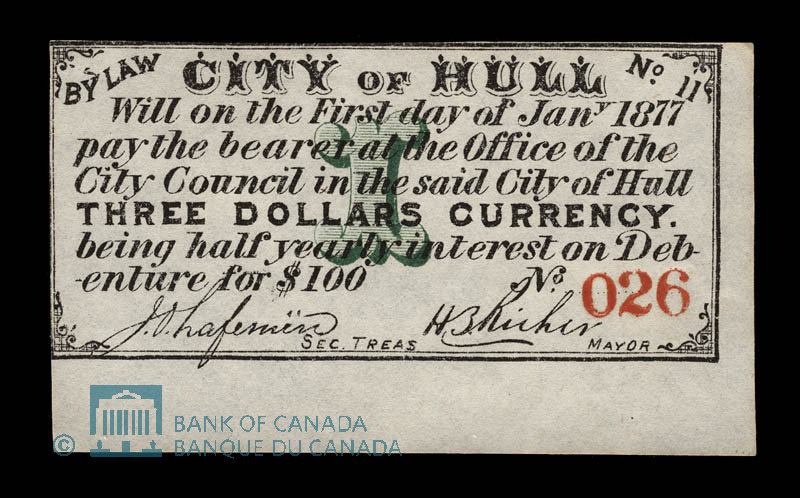 BY LAW CITY OF HULL No. 11
Will on the First day of Jany 1877
pay the bearer at the Office of the
City Council in the said City of Hull
THREE DOLLARS CURRENCY.
being half yearly interest on Deb-
-enture for $100 No. 026
1
SEC. TREAS MAYOR
© BANK OF CANADA
BANQUE DU CANADA